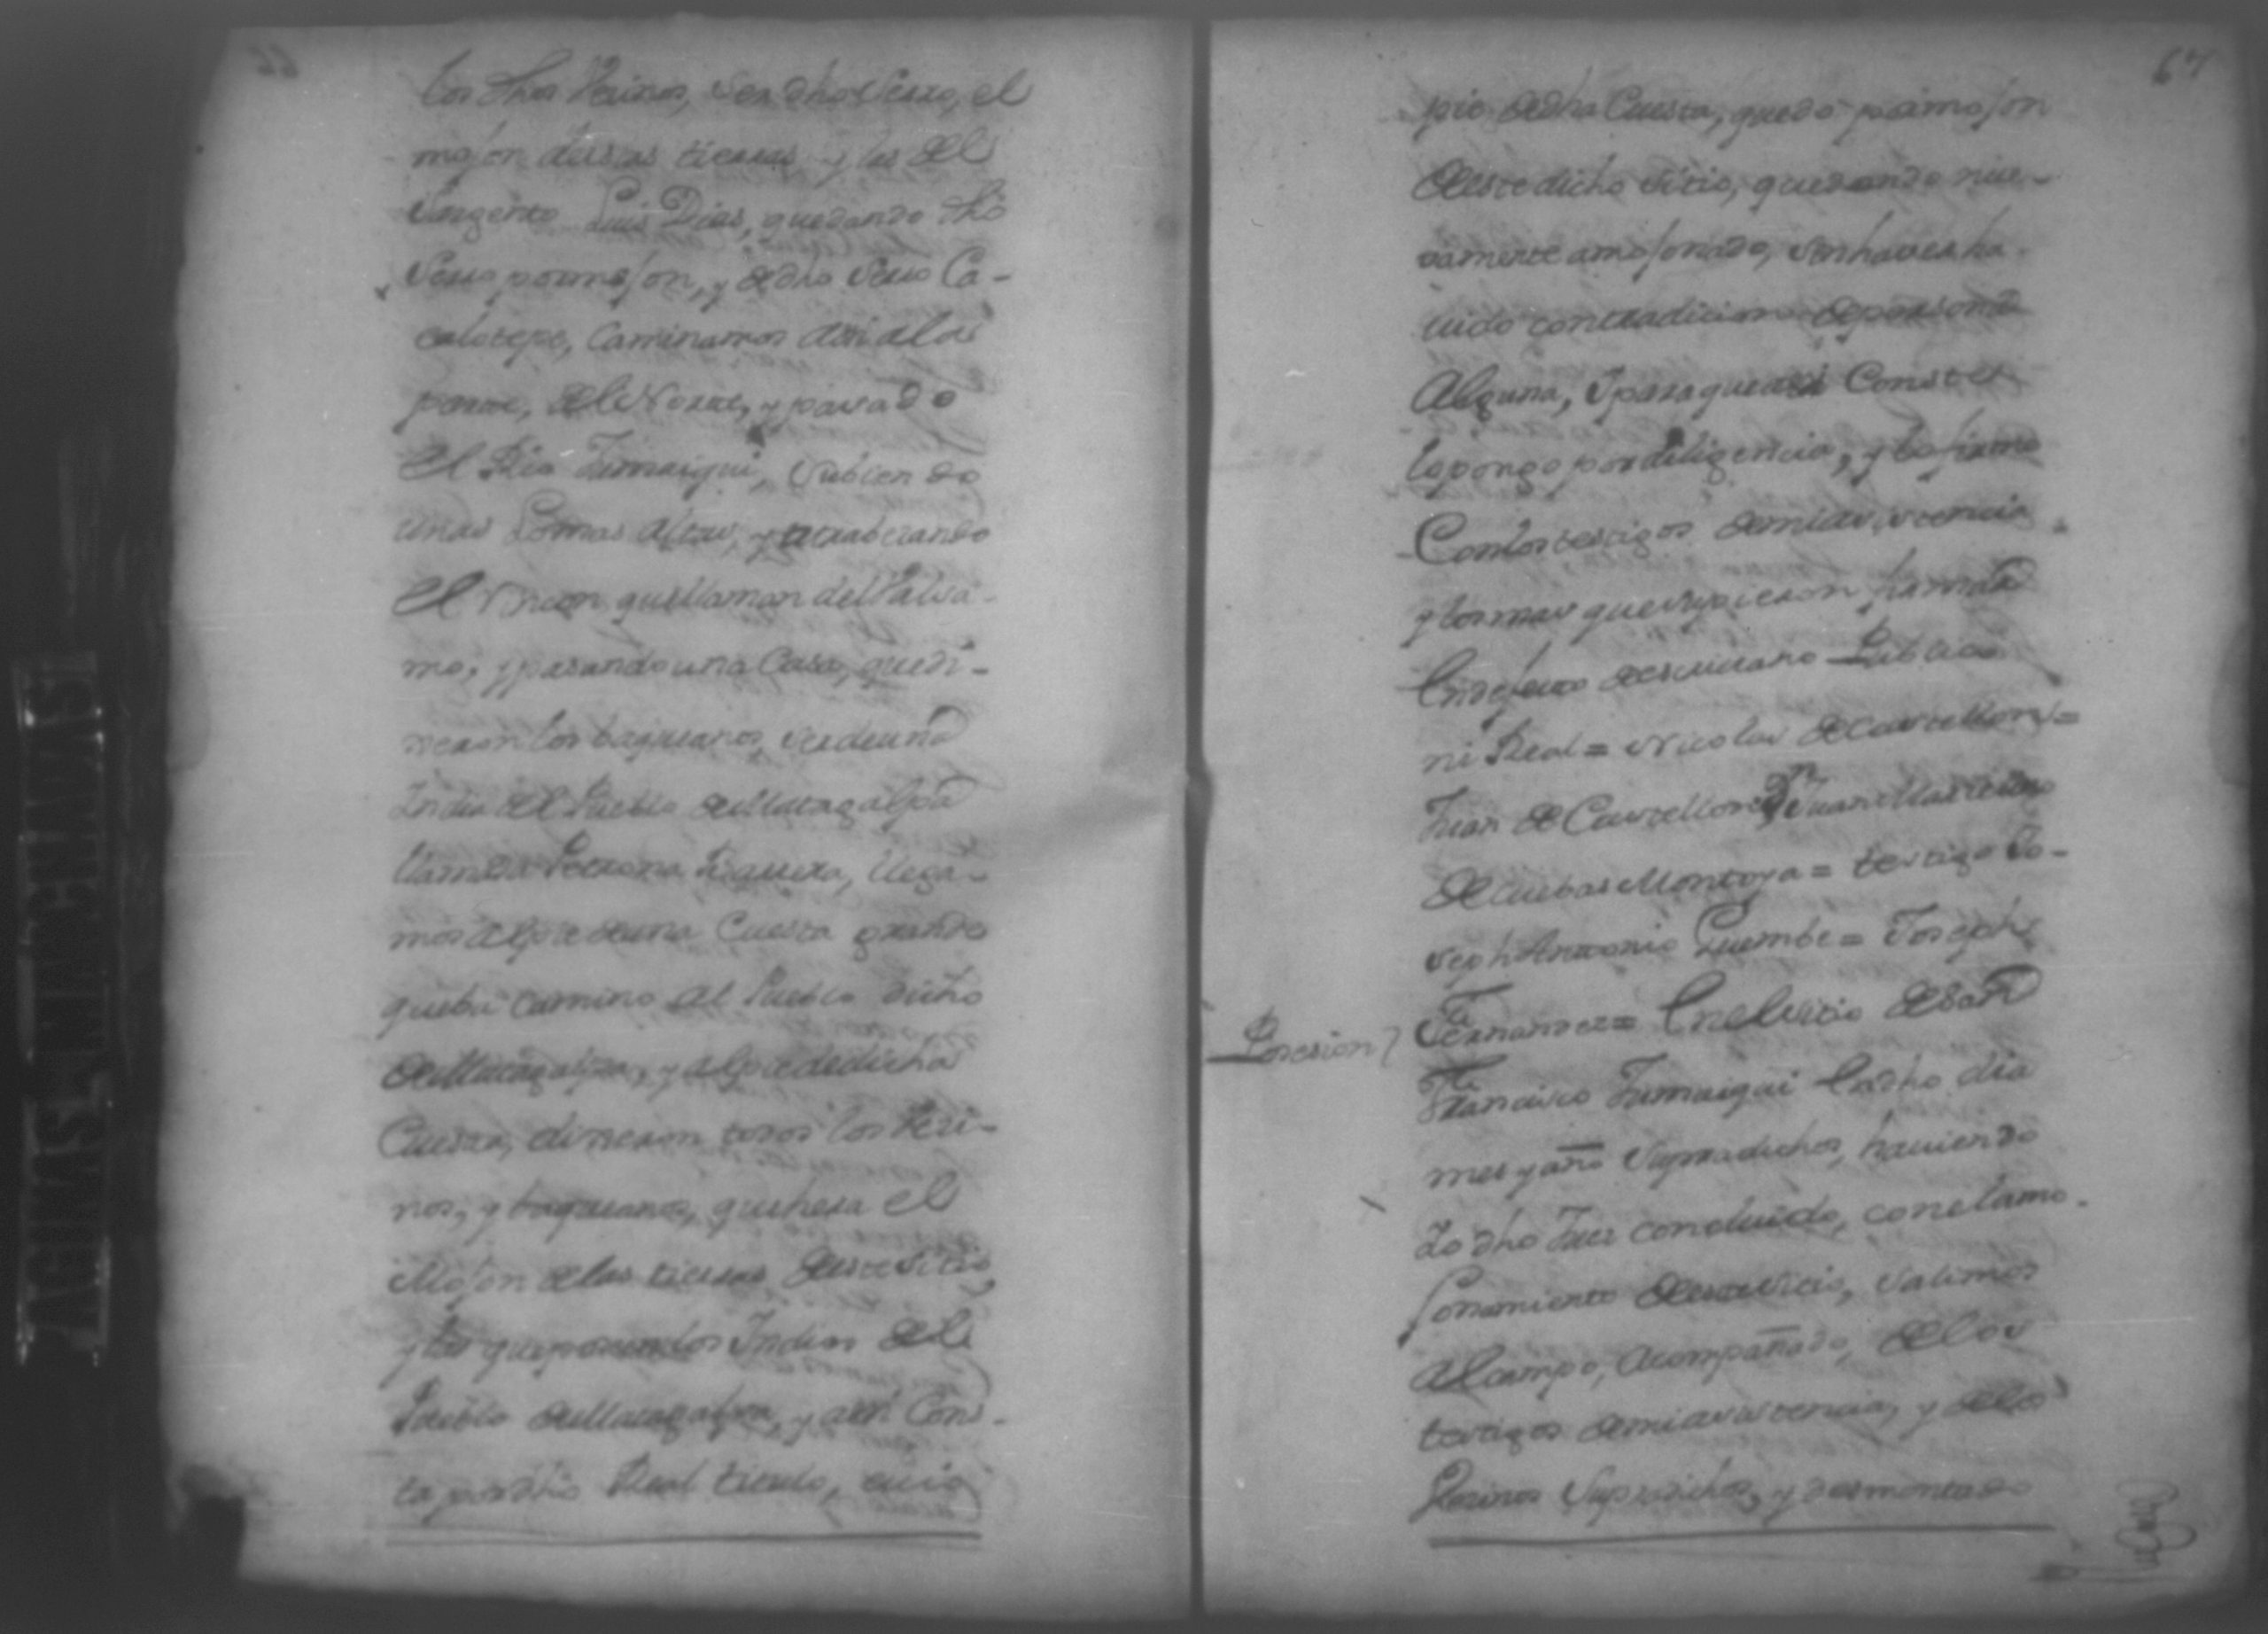 los dhos Vecinos, ser dho Serro, el
mojon dessas tierras y las del
Sargento Luis Dias, quedando dho
Serro por mojon, y de dho Serro Ca-
calotepe, Caminamos azia la
parte, del Norte, y pasado
el Rio Jumaiqui, subiendo
unas Lomas altas, y atrabesando
el rincon que llaman del Balsa-
mo, y pasando una Casa, que di-
xeron los baqueanos, ser de una
India del Pueblo de Matagalpa
llamada Petrona Figuera, llega-
mos al pie de una Cuesta grande
que ba camino al Pueblo dicho
de Matagalpa, y al pie de dicha
Cuesta, dixeron todos los Veci-
nos, y baqueanos, que hera el
Mojon de las tierras deste Sitio,
y las que poseen los Indios del
Pueblo de Matagalpa, y assi Cons-
ta por dho Real titulo, cuio
67
pie de dha Cuesta, quedo por mojon
deeste dicho sitio, quedando nue-
vamente amojonado, sin haver ha-
uido contradicion de persona
Alguna, y para que assi Conste
lo pongo por diligencia, y lo firmo
Con los testigos de mi asistencia
y los mas que supieron firmar
en defecto de escriuano Publico
ni Real = Nicolas de Castellon =
Juan de Castellon = Dn Juan
de Cuebas Montoya = testigo Jo-
seph Antonio = Joseph
Posesion Fernandez = En el sitio de San
Francisco Jumaiqui en dho dia
mes y año supradichos, hauiendo
Yo dho Juez concluido, con el amo-
jonamiento deeste sitio, salimos
al campo, acompañado, de los
testigos de mi asistencia, y de los
Vecinos supradichos, y desmontado